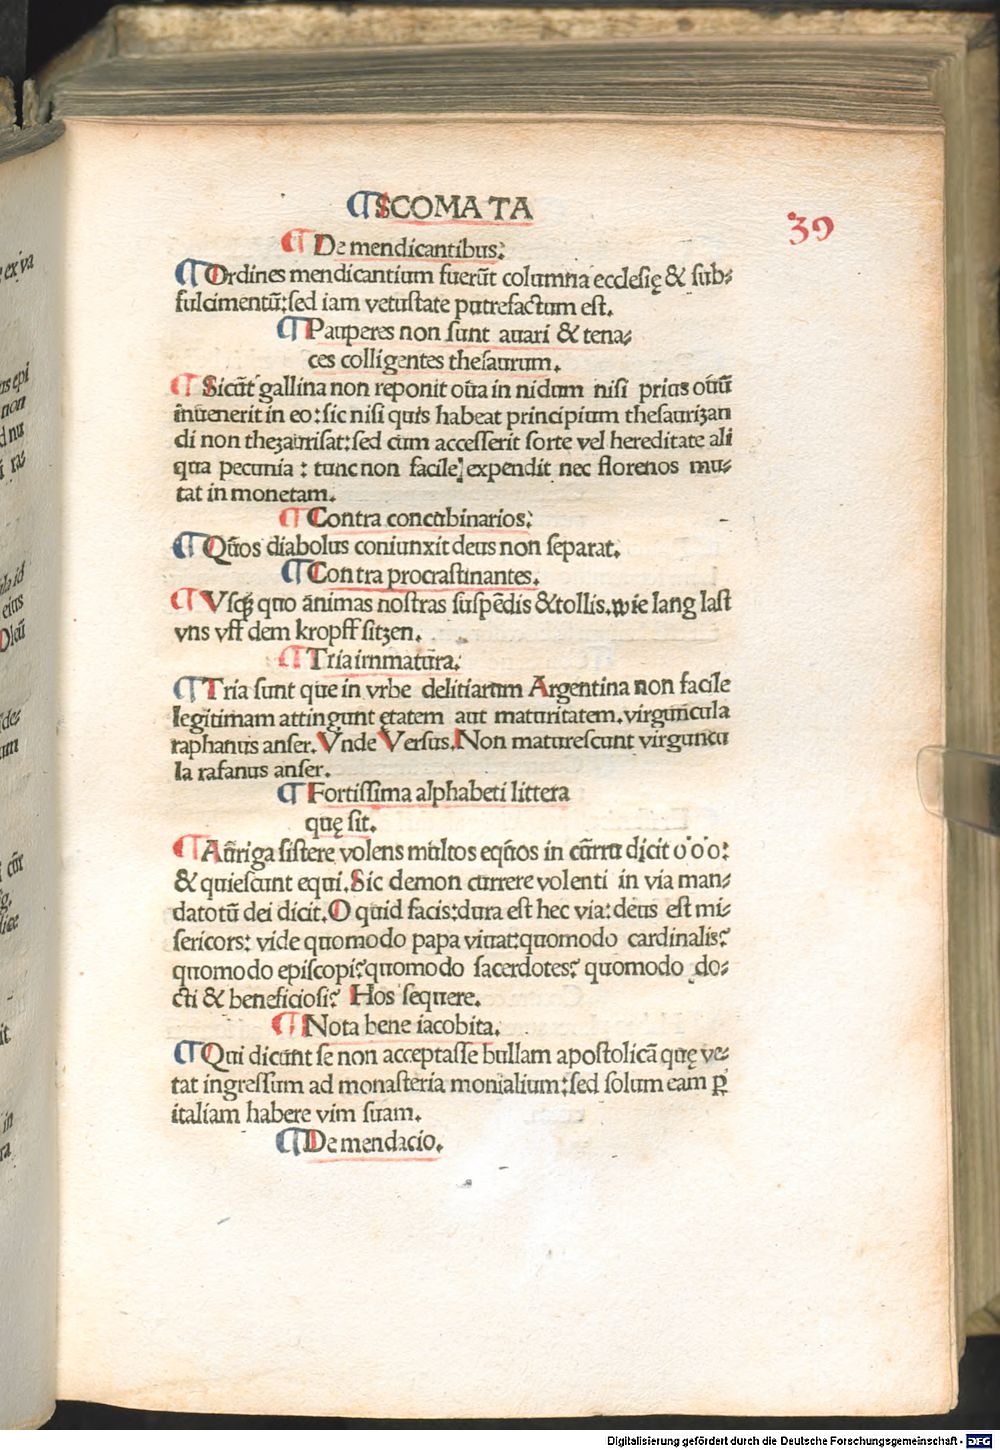 ¶SCOMATA
39
¶ De mendicantibus:
¶Ordines mendicantium fuerūt columna ecclesię & sub⸗
fulcimentū:sed iam vetustate putrefactum est.
¶Pauperes non sunt auari & tena⸗
ces colligentes thesaurum.
¶ Sicūt gallina non reponit oūa in nidum nisi prius ouū
inuenerit in eo:sic nisi quis habeat principium thesaurizan
di non thezaurisat:sed cum accesserit sorte vel hereditate ali
qua pecunia : tunc non facile expendit nec florenos mu⸗
tat in monetam.
¶ Contra concubinarios:
¶Quos diabolus coniunxit deus non separat.
¶Contra procrastinantes.
¶ Vsqꝫ quo animas nostras suspēdis & tollis.wie lang last
vns vff dem kropff sitzen.
¶Tria immatura:
¶Tria sunt que in vrbe delitiarum Argentina non facile
legitimam attingunt ętatem aut maturitatem.virguncula
raphanus anser.Vnde Versus.Non maturescunt virguncu
la rafanus anser.
¶ Fortissima alphabeti littera
quę sit.
¶Auriga sistere volens multos equos in curru dicit o o o:
& quiescunt equi.Sic demon currere volenti in via man⸗
datotū dei dicit.O quid facis:dura est hec via:deus est mi⸗
sericors: vide quomodo papa viuat:quomodo cardinalis?
quomodo episcopi?quomodo sacerdotes? quomodo do⸗
cti & beneficiosi? Hos sequere.
¶Nota bene iacobita.
¶Qui dicunt se non acceptasse bullam apostolicā quę ve⸗
tat ingressum ad monasteria monialium:sed solum eam ꝑ
italiam habere vim suam.
¶De mendacio.
Digitalisierung gefördert durch die Deutsche Forschungsgemeinschaft - DFG